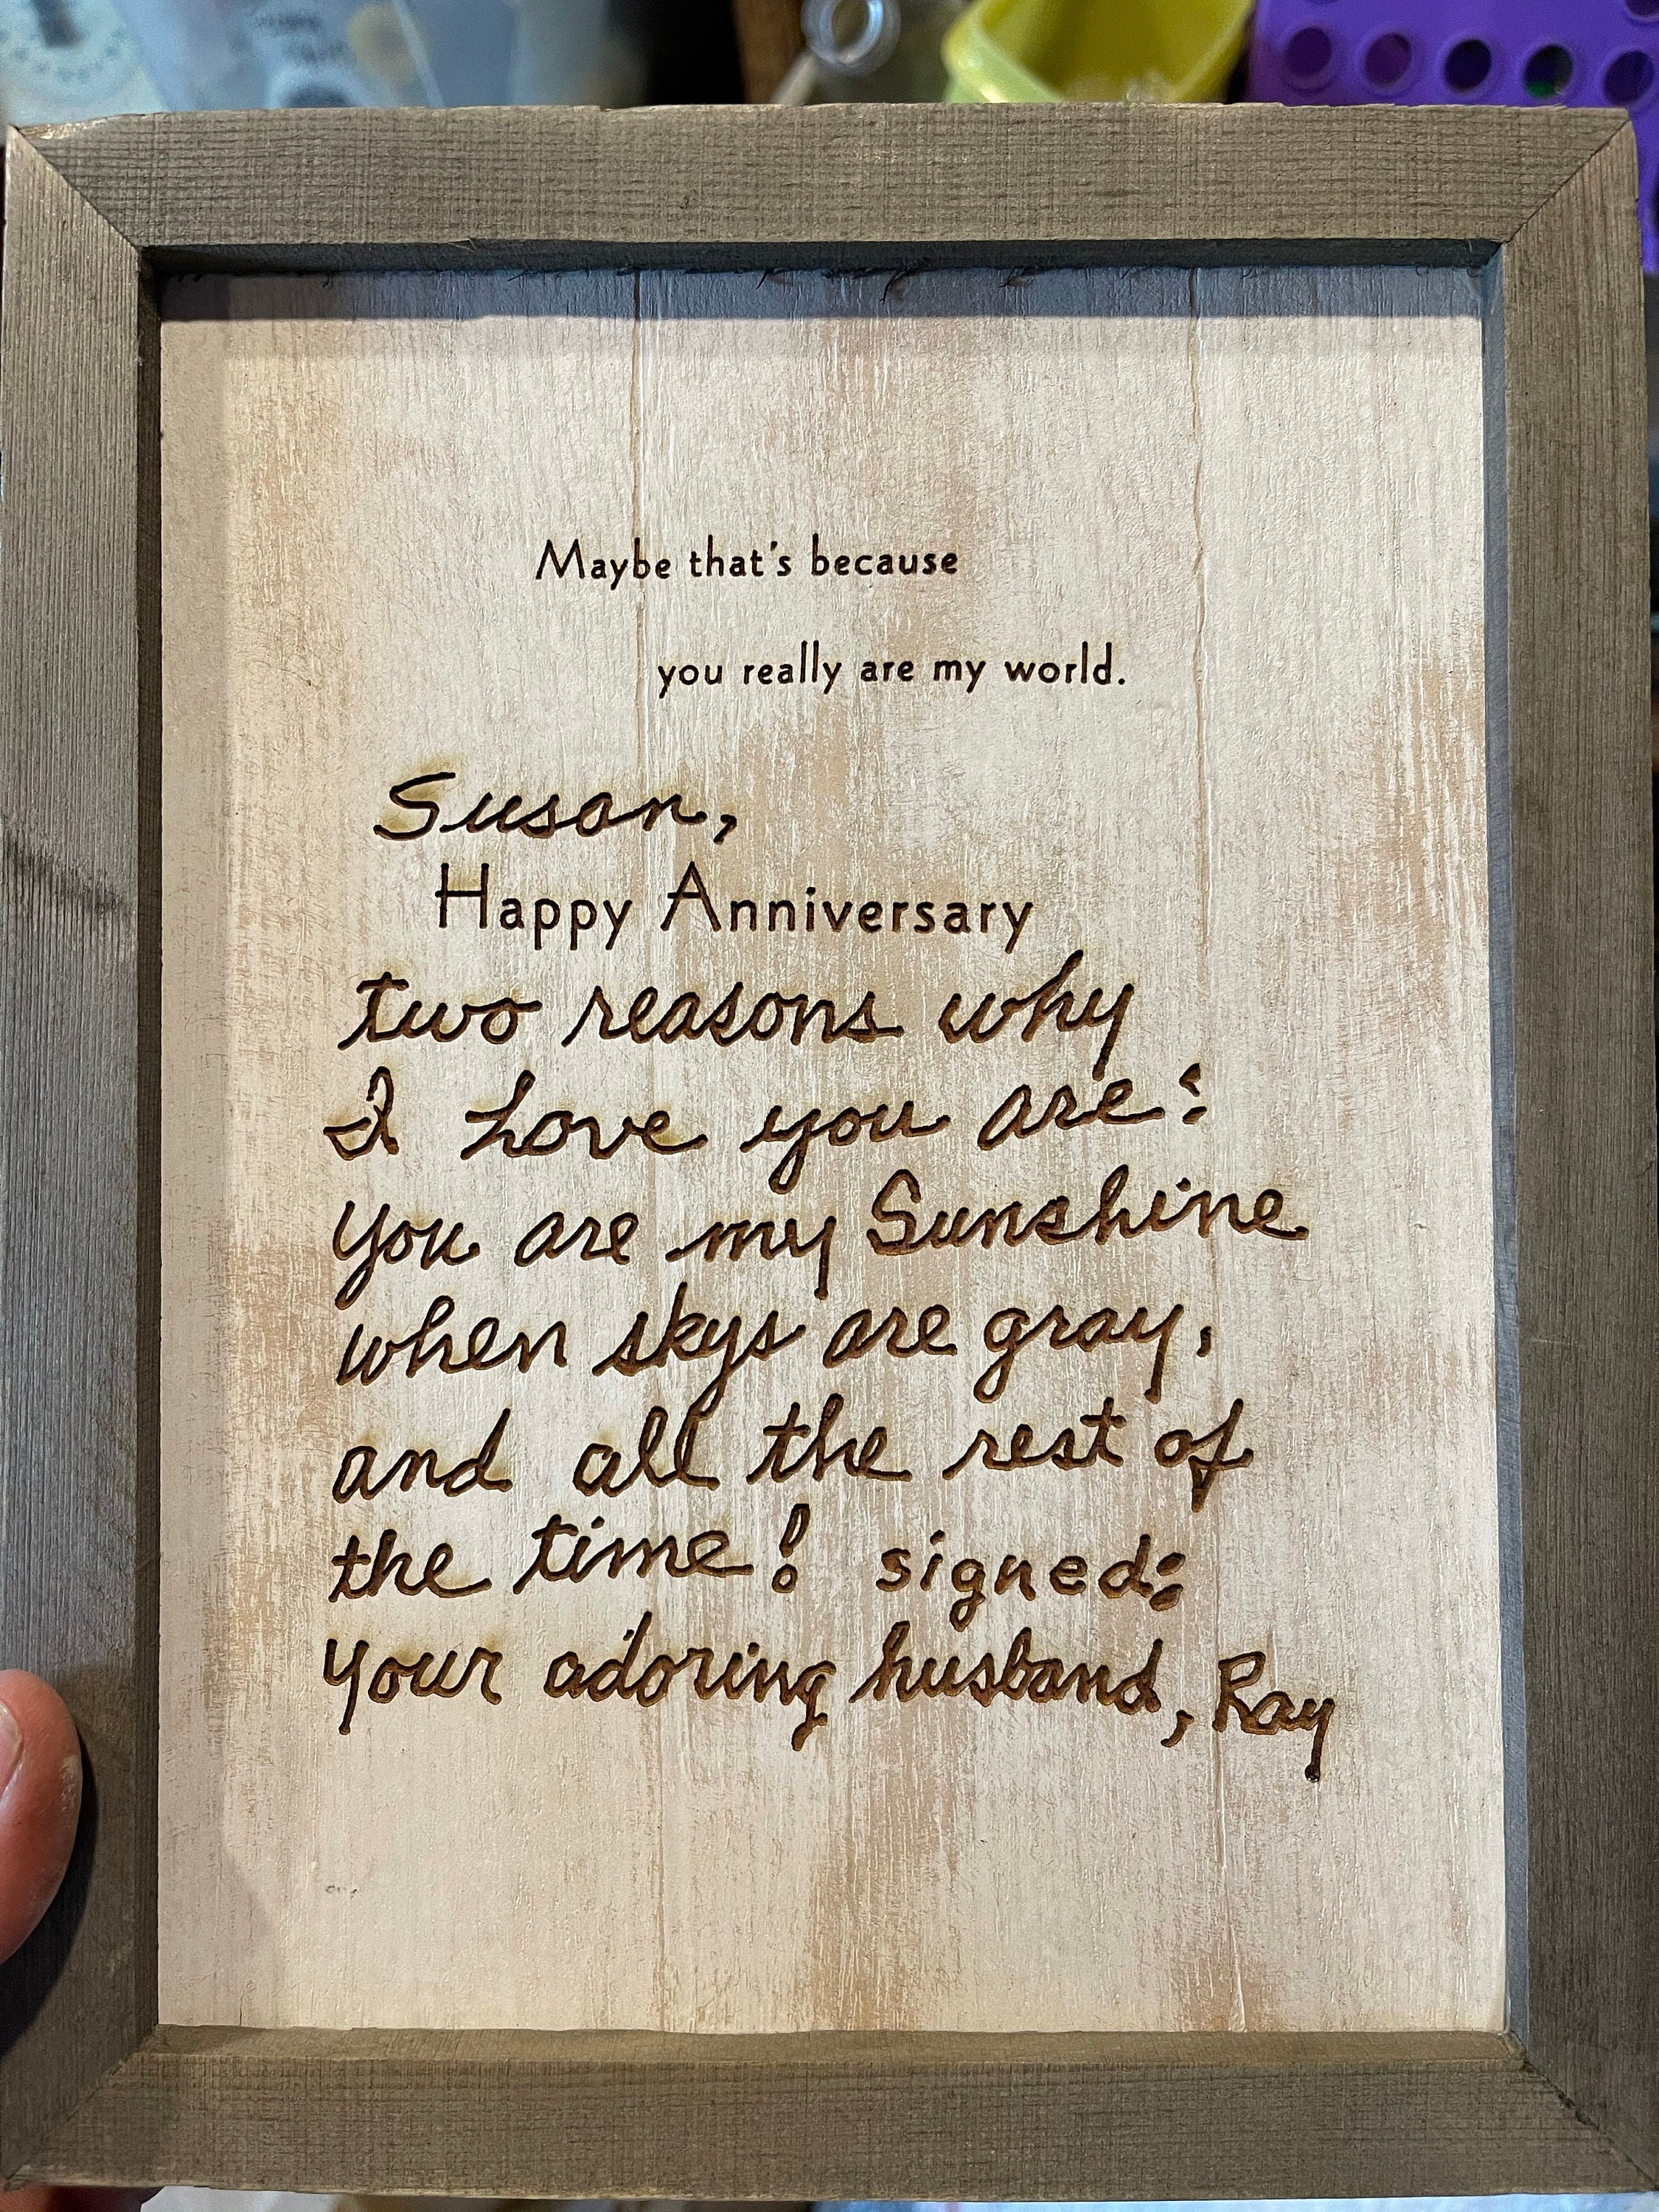 Maybe that's because
you really are my world.
Susan,
Happy Anniversary
two reasons why
I Love you are:
You are my Sunshine
when skys are gray,
and all the rest of
the time! signed:
Your adoring husband, Ray